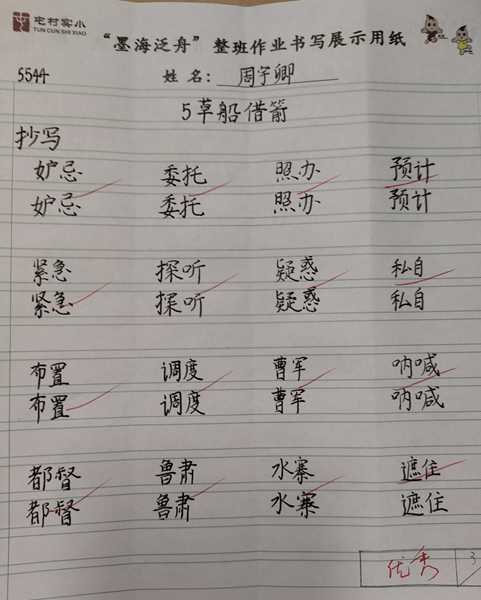 屯村实小
TUN CUN SHI XIAO
“墨海泛舟”整班作业书写展示用纸
5544 姓名：周宇卿
5草船借箭
抄写
妒忌 委托 照办 预计
妒忌 委托 照办 预计
紧急 探听 疑惑 私自
紧急 探听 疑惑 私自
布置 调度 曹军 呐喊
布置 调度 曹军 呐喊
都督 鲁肃 水寨 遮住
都督 鲁肃 水寨 遮住
优秀 3